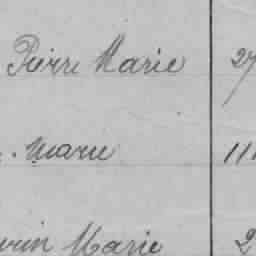 Pierre Marie 27
Marie 11
Marie 2